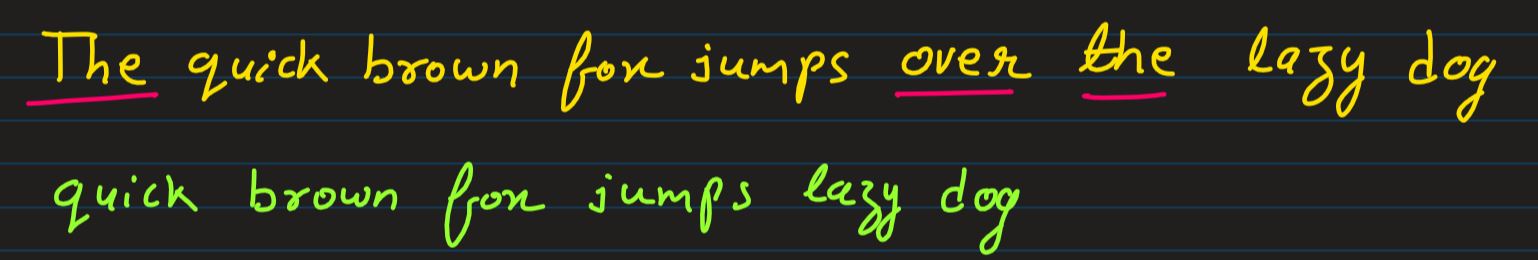 The quick brown fox jumps over the lazy dog
quick brown fox jumps lazy dog